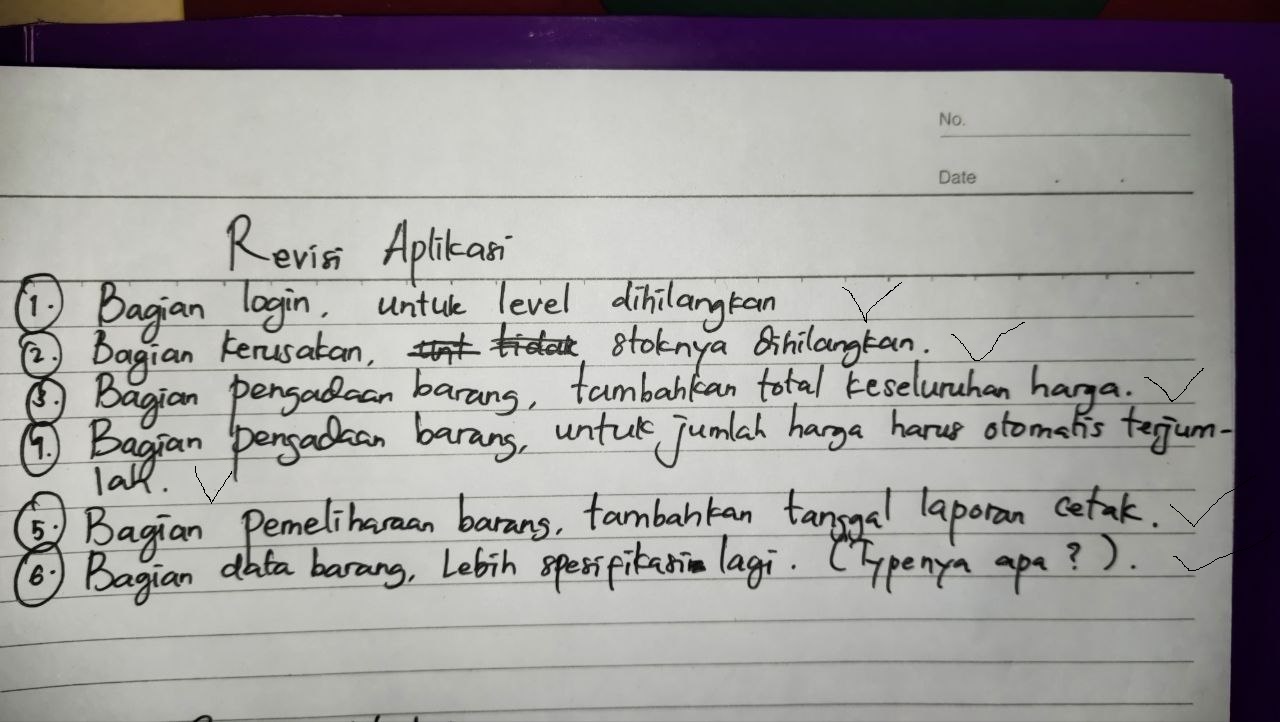 No.
Date
Revisi Aplikasi
1. Bagian login, untuk level dihilangkan
2. Bagian kerusakan, stoknya dihilangkan.
3. Bagian pengadaan barang, tambahkan total keseluruhan harga.
4. Bagian pengadaan barang, untuk jumlah harga harus otomatis terjum-
lah.
5. Bagian Pemeliharaan barang, tambahkan tanggal laporan cetak.
6. Bagian data barang, Lebih spesifikasi lagi. (Typenya apa ?).